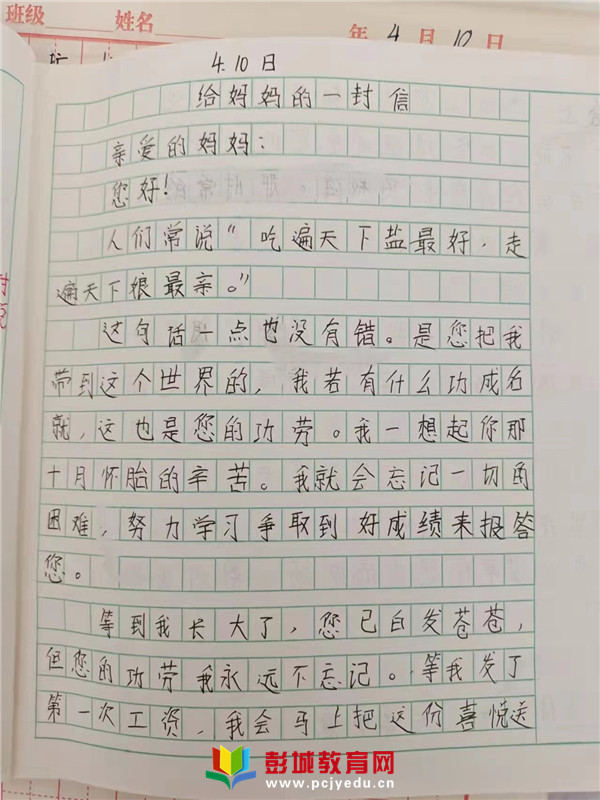 班级 姓名
年4月10日
4.10日
给妈妈的一封信
亲爱的妈妈：
您好！
人们常说“吃遍天下盐最好，走
遍天下娘最亲。”
这句话一点也没有错。是您把我
带到这个世界的，我若有什么功成名
就，这也是您的功劳。我一想起你那
十月怀胎的辛苦。我就会忘记一切的
困难，努力学习争取到好成绩来报答
您。
等到我长大了，您已白发苍苍，
但您的功劳我永远不忘记。等我发了
第一次工资，我会马上把这份喜悦送
彭城教育网
www.pcjyedu.cn